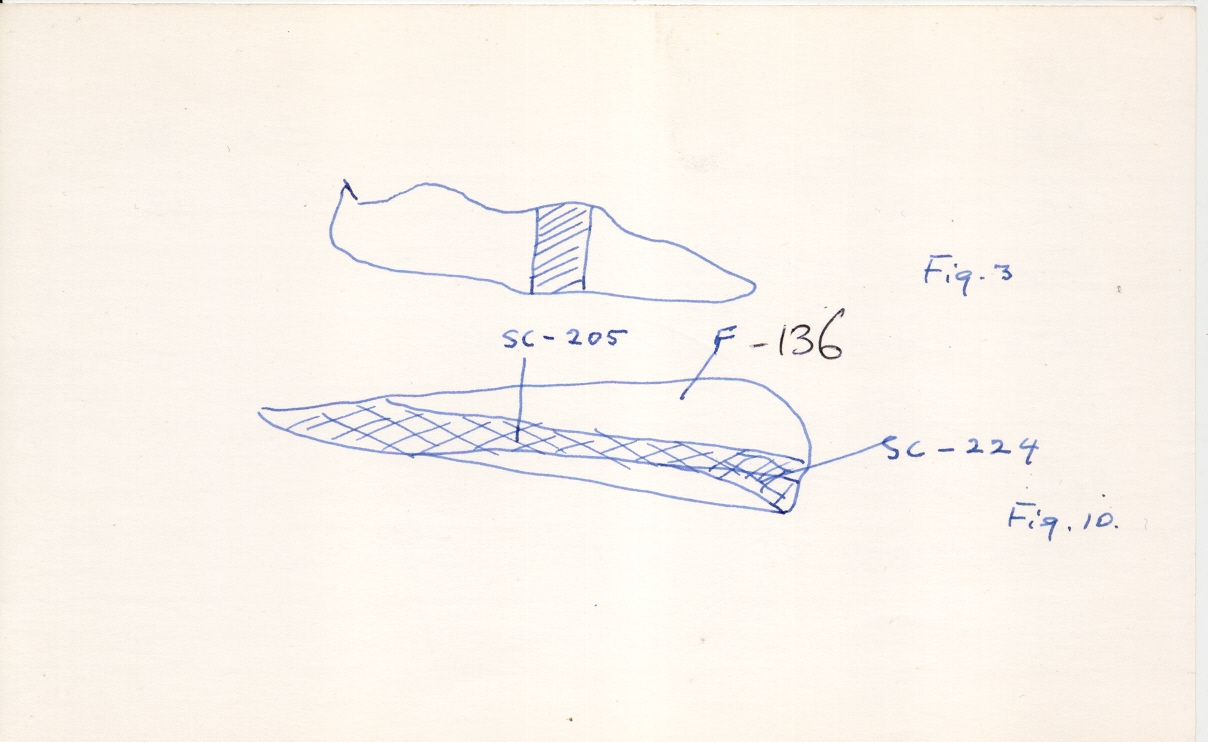 Fig. 3
SC - 205
F - 136
SC - 224
Fig. 10.